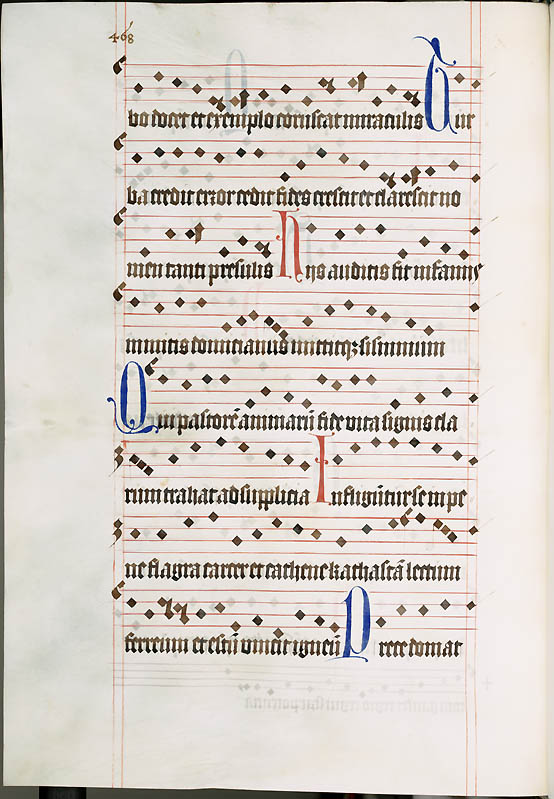 468
vo docet et exemplo coruscat miraculis Cur
ba credit error cedit fides crescit et clarescit no
men tanti presulis Hijs auditis fit insanus
inmitis domicianus mittitq; sisinnium
Qui pastorē animarū fide vita signis cla
rum trahat ad supplicia Infligūtur sempe
ne flagra carcer et cathene kathastā lectum
ferreum et estū vincit igneū Prece domat